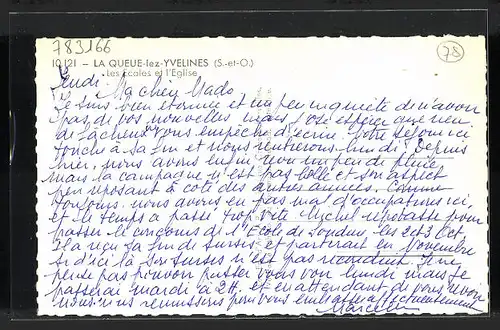 783166
78
10121 – LA QUEUE-lez-YVELINES (S.-et-O.)
Les Ecoles et l'Eglise
Jeudi Ma chère Mado
Je suis bien étonnée et un peu inquiète de n'avoir
pas de vos nouvelles mais j'ose espérer que rien
de fâcheux vous empêche d'écrire. Notre séjour ici
touche à sa fin et nous rentrerons lundi. Depuis
hier, nous avons enfin un peu de pluie
mais la campagne n'est pas belle et son aspect
peu reposant à côté des autres années. Comme
toujours nous avons eu pas mal d'occupations ici,
et le temps a passé trop vite. Michel
passer le concours de l'Ecole de les 2 et 3 Oct
Il a reçu sa fin de sursis et partirait en Novembre
si d'ici là son sursis n'est pas reconduit. Je ne
pense pas pouvoir passer vous voir lundi mais je
passerai mardi à 2H. et en attendant de vous revoir
nous nous réunissons pour vous embrasser affectueusement
Marcelle